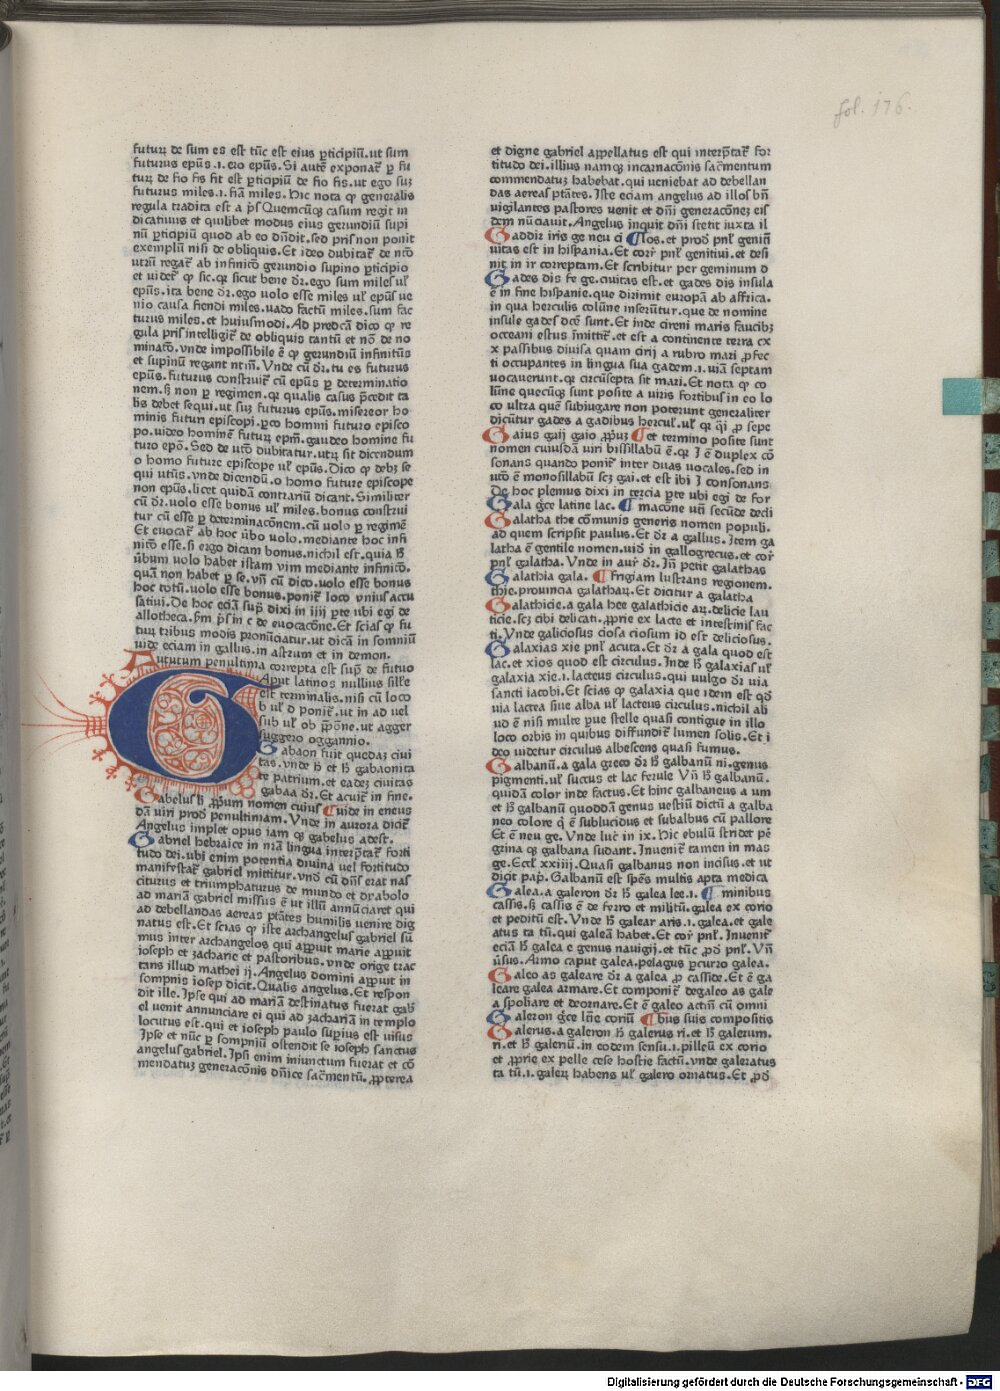 fol. 176.
futuꝝ de sum es est tūc est eius ꝑticipiū.ut sum
futurus epūs.ı.ero epūs. Si autē exponaꞇ̄ ꝑ fi
tuꝝ de fio fis fit est ꝑticipiū de fio fis.ut ego suꝫ
futurus miles.ı.fiā miles. Hic nota ꝙ generalis
regula tradita est a p̄s Quemcūqꝫ casum regit in
dicatiuus et quilibet modus eius gerundiū supi
nū ꝑticipiū quod ab eo dn̄dit.sed pris̄ non ponit
exemplū nisi de obliquis.Et ideo dubitaꞇ̄ de ntō
utrū regaꞇ̄ ab infinito gerundio supino ꝑticipio
et uideꞇ̄ ꝙ sic.qꝛ sicut bene dꝛ̄.ego sum miles ul̄
epūs.ita bene dꝛ̄.ego uolo esse miles ul̄ epūs ue
nio causa fiendi miles.uado factū miles.sum fac
turus miles.et huiusmodi. Ad predcā dico ꝙ re
gula pris̄ intelligiꞇ̄ de obliquis tantū et nō de no
minatō.vnde impossibile ē ꝙ gerundiū infinitūs
et supinū regant ntm̄. Vnde cū dꝛ̄.tu es futurus
epūs.futurus construiꞇ̄ cū epūs ꝑ determinatio
nem.s̄ non ꝑ regimen.qꝛ qualis casus p̄cedit ta
lis debet sequi.ut suꝫ futurus epūs.misereor ho
minis futuri episcopi.ꝑco homini futuro episco
po.uideo hominē futuꝝ epm̄.gaudeo homine fu
turo epō. Sed de utō dubitatur.utꝝ sit dicendum
o homo future episcope ul̄ epūs. Dico ꝙ debꝫ se
qui utūs.vnde dicendū.o homo future episcope
non epūs.licet quidā contrariū dicant. Similiter
cū dꝛ̄.uolo esse bonus ul̄ miles.bonus construi
tur cū esse ꝑ determinacōnem.cū uolo ꝑ regimē
Et euocaꞇ̄ ab hoc ūbo uolo.mediante hoc infi
nitō esse.si ergo dicam bonus.nichil est.quia h̄
ūbum uolo habet istam vim mediante infinitō.
quā non habet ꝑ se.vn̄ cū dico.uolo esse bonus
hoc totū.uolo esse bonus.poniꞇ̄ loco vnius accu
satiui. De hoc eciā sup̄ dixi in iiij ꝑte ubi egi de
allotheca.ꝑm p̄s in c de euocacōne. Et scias ꝙ fu
tuꝝ tribus modis pronūciatur.ut dicā in somniū
uide eciam in gallus.in astrum et in demon.
Aututum penultima correpta est sup̄ de futuo
G Aput latinos nullius sill̄e
est terminalis.nisi cū loco
b ul̄ d poniꞇ̄.ut in ad uel
sub ul̄ ob p̄pōne.ut agger
suggero oggannio.
Gabaon fuit quedaꝫ ciui
tas.vnde h̄ et h̄ gabaonita
te patrium.et eadeꝫ ciuitas
gabaa dꝛ̄. Et acuiꞇ̄ in fine.
Gabelus h̄ ꝓpūm nomen cuius ¶uide in eneus
dā uiri prod̄ penultimam. Vnde in aurora diciꞇ̄
Angelus implet opus iam qꝫ gabelus adest.
Gabriel hebraice in nr̄a lingua interp̄taꞇ̄ forti
tudo dei.ubi enim potentia diuina uel fortitudo
manifestaꞇ̄ gabriel mittitur.vnd̄ cū dn̄s erat nas
citurus et triumphaturus de mundo et dyabolo
ad mariā gabriel missus ē ut illū annūciaret qui
ad debellandas aereas ptātes humilis uenire dig
natus est.Et scias ꝙ iste archangelus gabriel sū
mus inter archangelos qui apꝑuit marie apꝑuit
ioseph et zacharie et pastoribus.vnde orige trac
tans illud mathei ij.Angelus domini apꝑuit in
sompnis iosep dicit. Qualis angelus.Et respon
dit ille. Ipse qui ad mariā destinatus fuerat gab̄
el uenit annunciare ei qui ad zachariā in templo
locutus est.qui et ioseph paulo suꝑius est uisus
Ipse et nūc ꝑ sompniū ostendit se ioseph sanctus
angelus gabriel. Ipsi enim iniunctum fuerat et cō
mendatuꝫ generacōnis dn̄ice sac̄mentū. ꝓpterea
et digne gabriel appellatus est qui interp̄taꞇ̄ for
titudo dei.illius namqꝫ incarnacōnis sac̄mentum
commendatuꝫ habebat.qui ueniebat ad debellan
das aereas ptātes. Iste eciam angelus ad illos bn̄
vigilantes pastores uenit et dn̄i generacōneꝫ eis
dem nūciauit. Angelus inquit dn̄i stetit iuxta il
Gaddir iris ge neu ci ¶los.et prod̄ pnl̄ geniū
uitas est in hispania.Et corꝛ̄ pnl̄ genitiui.et desi
nit in ir correptam.Et scribitur per geminum d
Gades dis fe ge.ciuitas est.et gades dis insula
ē in fine hispanie.que dirimit europā ab affrica.
in qua herculis colūne inserūtur.que de nomine
insule gades dcē sunt. Et inde cireni maris faucibꝫ
occeani estus īmittiꞇ̄.et est a continente terra cx
x passibus diuisa quam cirij a rubro mari ꝓfec
ti occupantes in lingua sua gadem.ı.uiā septam
uocauerunt.qꝛ circūsepta sit mari.Et nota ꝙ co
lūne quecūqꝫ sunt posite a uiris fortibus in eo lo
co ultra quē subiugare non poterunt generaliter
dicūtur gades a gadibus hercul̄.ul̄ qꝛ q̄i ꝓ sepe
Gaius gaij gaio ꝓpūꝫ ¶et termino posite sunt
nomen cuiusdā uiri bissillabū ē.qꝛ I ē duplex cō
sonans quando poniꞇ̄ inter duas uocales.sed in
utō ē monosillabū scꝫ gai.et est ibi J consonans
De hoc plenius dixi in tercia ꝑte ubi egi de for
Gala gc̄e latine lac. ¶ macōne utī secūde decli
Galatha the cōmunis generis nomen populi.
ad quem scripsit paulus. Et dꝛ̄ a gallus. Item ga
latha ē gentile nomen.uid̄ in gallogrecus.et corꝛ̄
pnl̄ galatha. Vnde in aur̄ dꝛ̄. In petit galathas
Galathia gala. ¶frigiam lustrans regionem.
thie.prouincia galathaꝝ. Et dicitur a galatha
Galathicie.a gala hee galathicie aꝝ.delicie lau
ticie.scꝫ cibi delicati.ꝓprie ex lacte et intestinis fac
ti.Vnde galiciosus ciosa ciosum id est deliciosus.
Galaxias xie pnl̄ acuta. Et dꝛ̄ a gala quod est
lac.et xios quod est circulus. Inde h̄ galaxias ul̄
galaxia xie.ı.lacteus circulus.qui uulgo dꝛ̄ uia
sancti iacobi.Et scias ꝙ galaxia que idem est qd̄
uia lactea siue alba ul̄ lacteus circulus.nichil ali
ud ē nisi multe ꝑue stelle quasi contigue in illo
loco orbis in quibus diffundiꞇ̄ lumen solis. Et i
deo uidetur circulus albescens quasi fumus.
Galbanū.a gala greco dꝛ̄ h̄ galbanū ni.genus
pigmenti.ul̄ succus et lac ferule Vn̄ h̄ galbanū.
quidā color inde factus.Et hinc galbaneus a um
et h̄ galbanū quoddā genus uestiū dictū a galba
neo colore q̄ ē sublucidus et subalbus cū pallore
Et ē neu ge. Vnde luc̄ in ix. Hic ebulū stridet ꝑē
grina ꝙ galbana sudant. Inueniꞇ̄ tamen in mas
ge.Eccl̄ xxiiij. Quasi galbanus non incisus.et ut
dicit pap̄. Galbanū est spēs multis apta medica
Galea.a galeron dꝛ̄ h̄ galea lee.ı. ¶ minibus
cassis.s̄ cassis ē de ferro et militū.galea ex corio
et peditū est.Vnde h̄ galear aris.ı.galea.et gale
atus ta tū.qui galeā habet.Et corꝛ̄ pnl̄. Inueniꞇ̄
eciā h̄ galea e genus nauigij.et tūc ꝓd̄ pnl̄. Vn̄
ūsus.Armo caput galea.pelagus ꝑcurro galea.
Galeo as galeare dꝛ̄ a galea ꝓ casside. Et ē ga
leare galea armare. Et componiꞇ̄ degaleo as gale
a spoliare et deornare.Et ē galeo actiū cū omni
Galeron gc̄e ln̄e coriū ¶bus suis compositis
Galerus.a galeron h̄ galerus ri.et h̄ galerum.
ri.et h̄ galenū.in eodem sensu.ı.pilleū ex corio
et ꝓprie ex pelle cese hostie factū.vnde galeratus
ta tū.ı.galeꝝ habens ul̄ galero ornatus.Et ꝓd̄
Digitalisierung gefördert durch die Deutsche Forschungsgemeinschaft - DFG